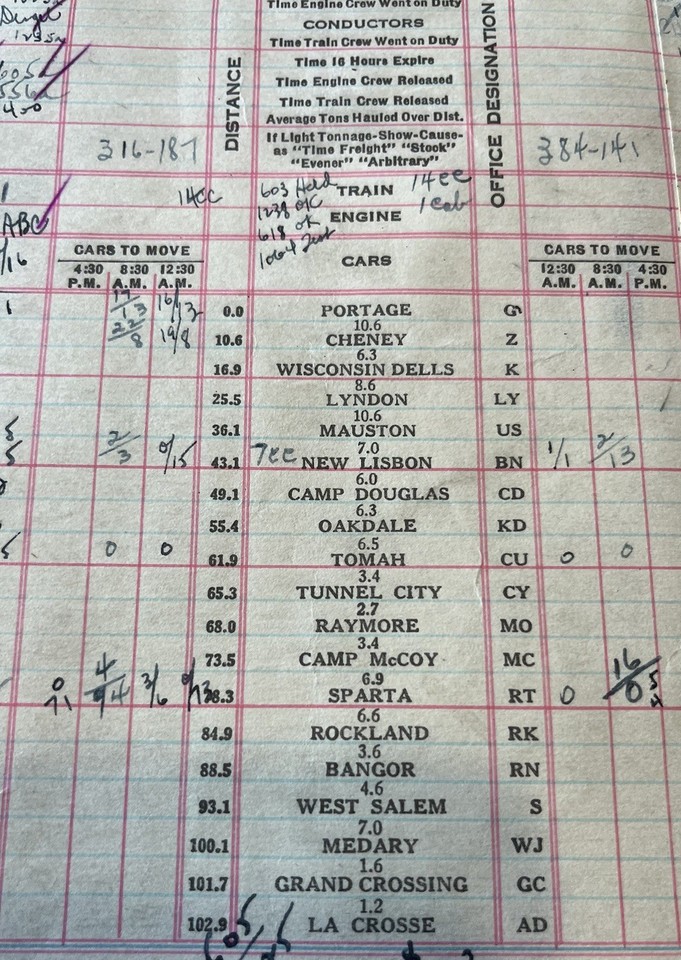 Time Engine Crew Went on Duty
CONDUCTORS
Time Train Crew Went on Duty
Time 16 Hours Expire
Time Engine Crew Released
Time Train Crew Released
Average Tons Hauled Over Dist.
If Light Tonnage-Show-Cause-
as "Time Freight" "Stock"
"Evener" "Arbitrary"
DISTANCE
OFFICE DESIGNATION
316-187
384-141
14cc 603 Held TRAIN 14cc
1238 OK ENGINE 1cab
618 OK
1064 CARS
ABC
/16
CARS TO MOVE
4:30 P.M. 8:30 A.M. 12:30 A.M.
CARS TO MOVE
12:30 A.M. 8:30 A.M. 4:30 P.M.
17/13 16/13 0.0 PORTAGE G
10.6
22/8 19/8 10.6 CHENEY Z
6.3
16.9 WISCONSIN DELLS K
8.6
25.5 LYNDON LY
10.6
36.1 MAUSTON US
7.0
2/3 0/15 43.1 7cc NEW LISBON BN 1/1 2/13
6.0
49.1 CAMP DOUGLAS CD
6.3
55.4 OAKDALE KD
6.5
0 0 61.9 TOMAH CU 0 0
3.4
65.3 TUNNEL CITY CY
2.7
68.0 RAYMORE MO
3.4
73.5 CAMP McCOY MC
6.9
0/71 3/6 78.3 SPARTA RT 0 16/0
6.6
84.9 ROCKLAND RK
3.6
88.5 BANGOR RN
4.6
93.1 WEST SALEM S
7.0
100.1 MEDARY WJ
1.6
101.7 GRAND CROSSING GC
1.2
102.9 LA CROSSE AD